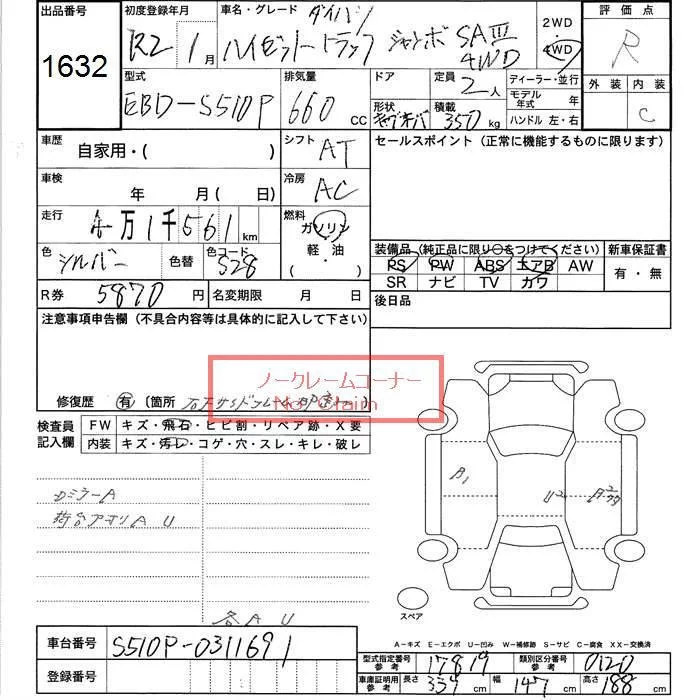 出品番号 初度登録年月 車名・グレード ダイハツ 2WD 評価点
1632 R2 1月 ハイゼットトラック ジャンボ SAⅢ 4WD 4WD R
型式 排気量 ドア 定員 ディーラー・並行 外装 内装
EBD-S510P 660 CC 2人 モデル年式 年 C
形状 積載 350 kg ハンドル 左・右
車歴 自家用・( ) シフト AT セールスポイント (正常に機能するものに限ります)
車検 年 月( 日) 冷房 AC
走行 万1千561 km 燃料 ガソリン
色 シルバー 色替 色コード S28 軽・油
装備品 (純正品に限り○をつけてください) 新車保証書
PS PW ABS エアB AW 有・無
SR ナビ TV カワ
R券 5870円 名変期限 月 日 後日品
注意事項申告欄 (不具合内容等は具体的に記入して下さい)
ノークレームコーナー
No Claim
修復歴 有 〔箇所
検査員記入欄 FW キズ・飛石・ヒビ割・リペア跡・X要
内装 キズ・汚レ・コゲ・穴・スレ・キレ・破レ
ロミラーA
荷台アオリA U
各A U
スペア
A-キズ E-エクボ U-凹み W-補修跡 S-サビ C-腐食 XX-交換済
車台番号 S510P-0311691
登録番号
型式指定番号 参考 17819 類別区分番号 参考 0120
車庫証明用 参考 長さ 339 cm 幅 147 cm 高さ 188 cm